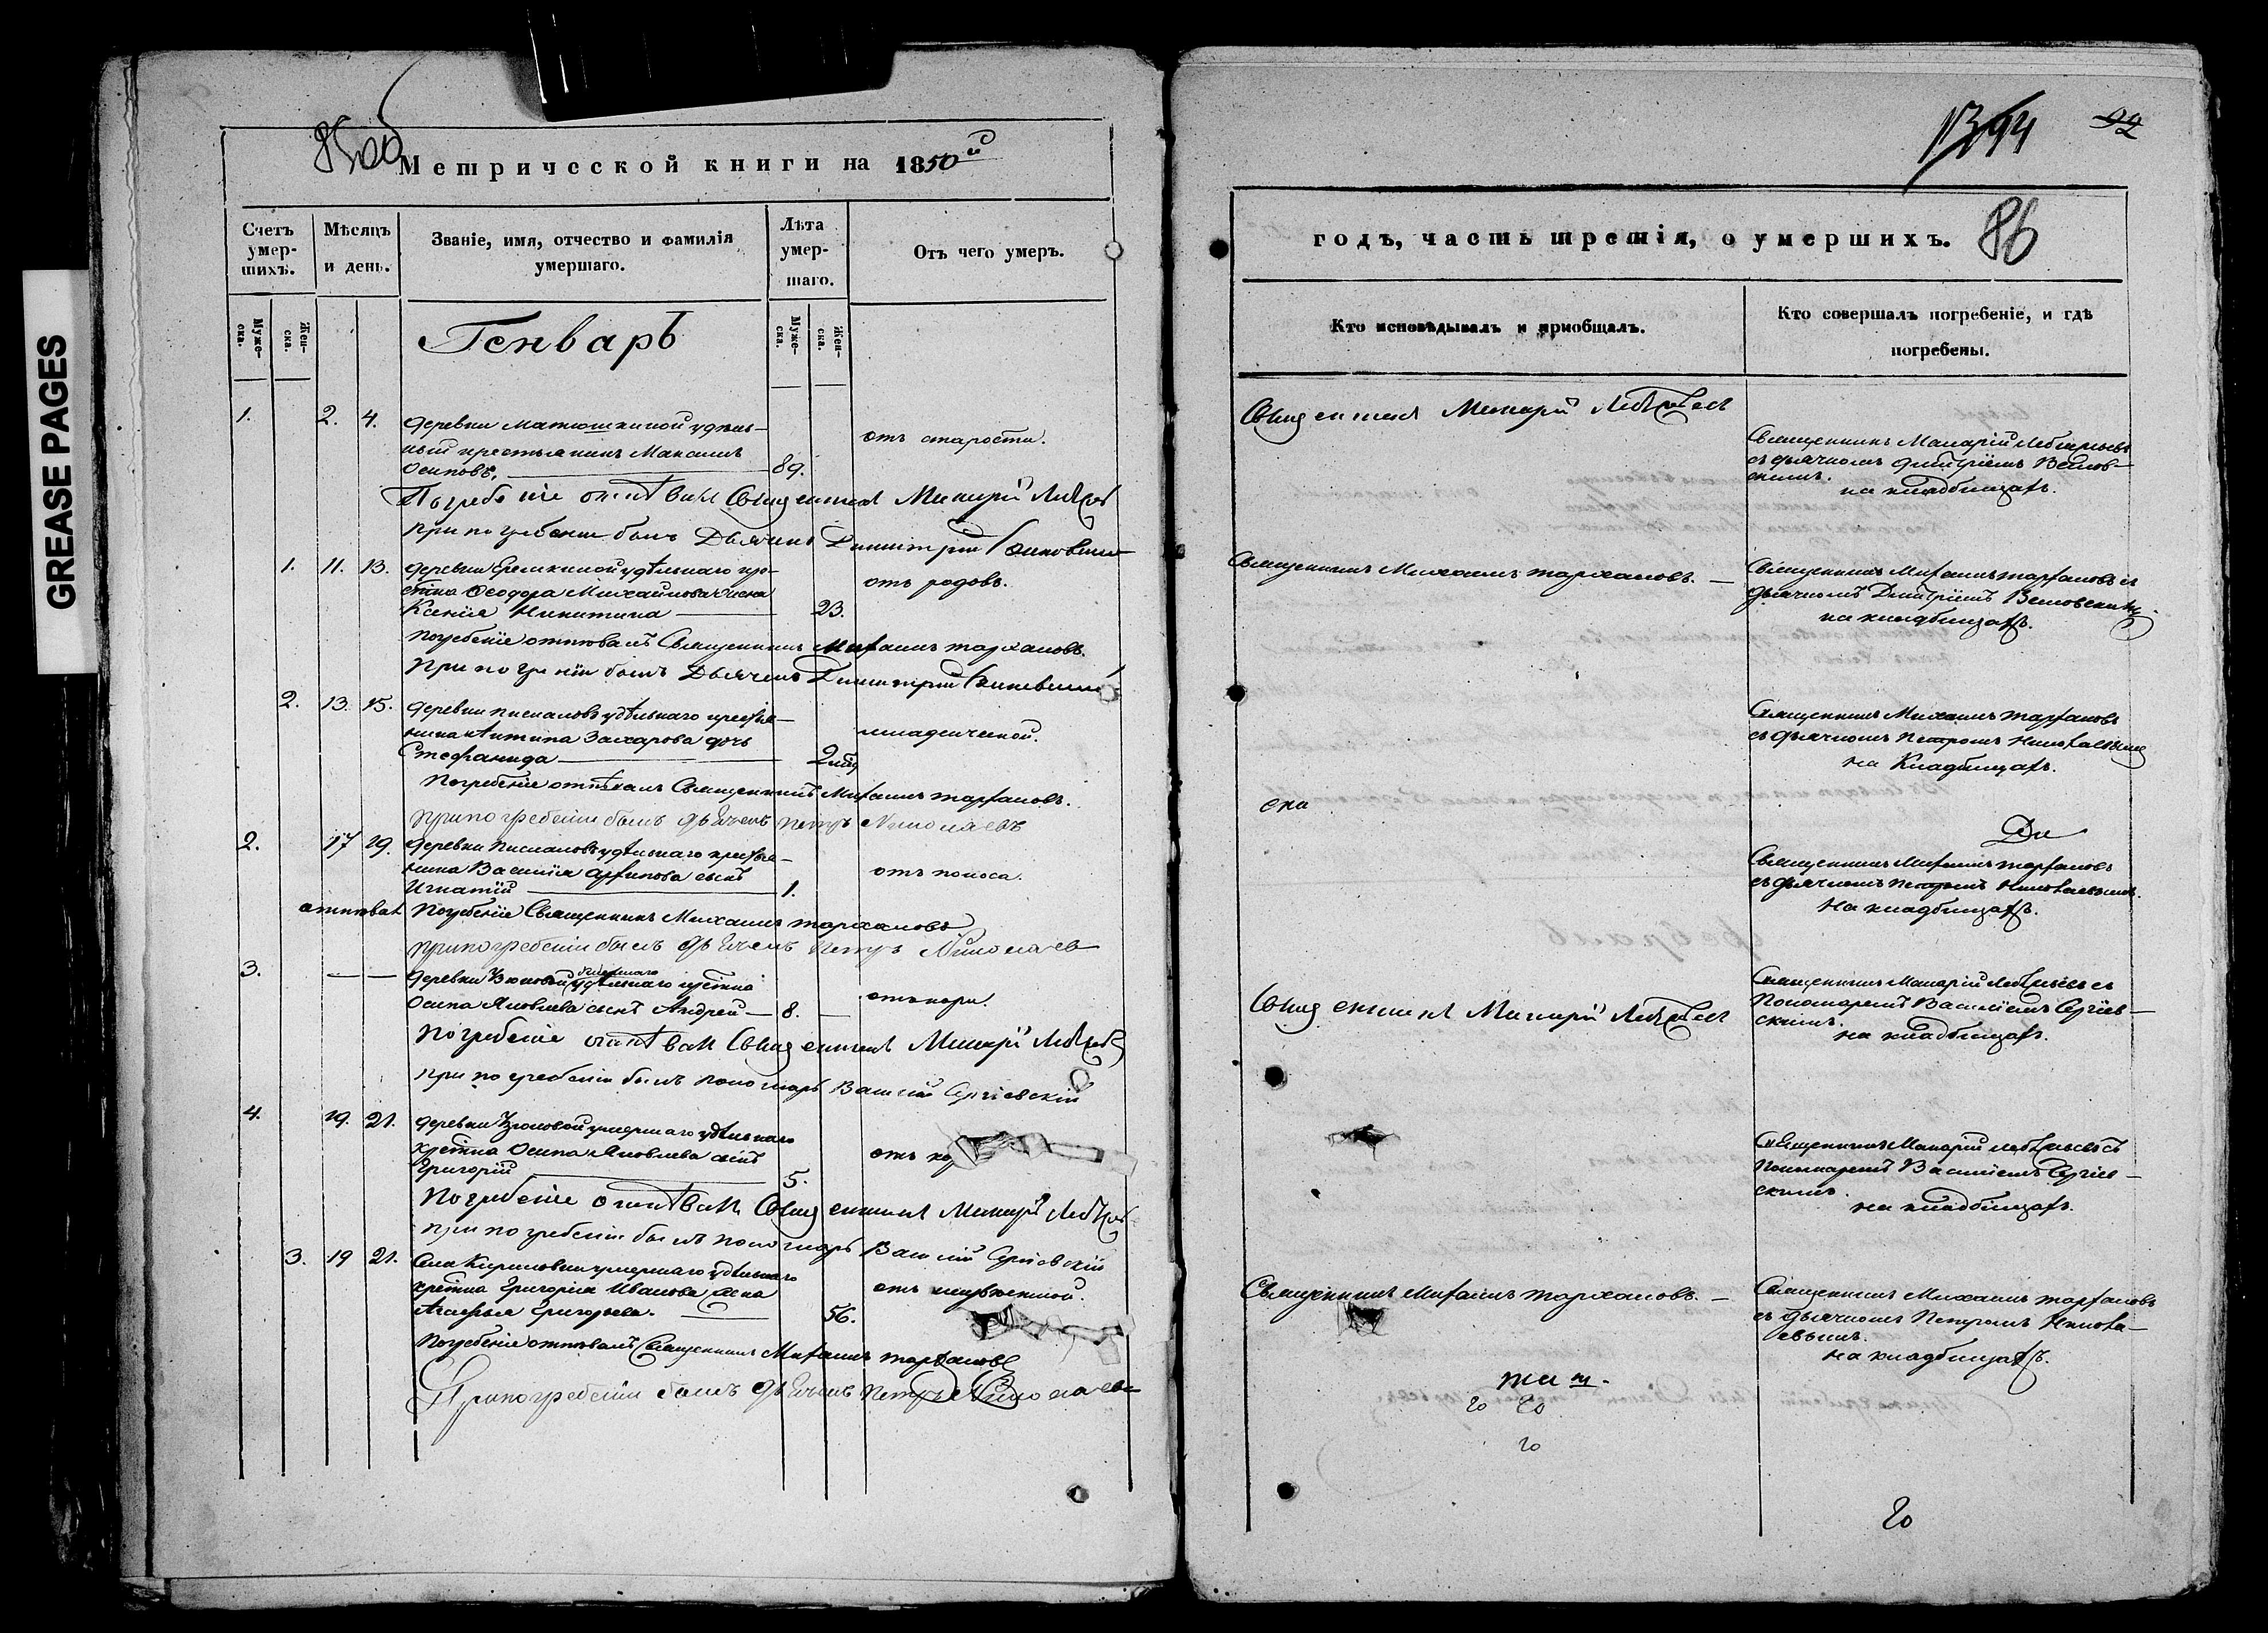 GREASE PAGES
85 об
Метрической книги на 1850й
Счетъ умер-шихъ.
Мѣсяцъ и день.
Званіе, имя, отчество и фамилія умершаго.
Лѣта умер-шаго.
Отъ чего умеръ.
Муже-ска.
Жен-ска.
Муже-ска.
Жен-ска.
Генварь
1. 2. 4. деревни Матюшкиной удѣль-
ный крестьянинъ Максимъ
Осиповъ. 89. отъ старости.
Погребеніе отпѣвалъ Священникъ Макарій
При погребеніи былъ Дьячекъ Димитрій
1. 11. 13. деревни Еремкиной удѣльнаго кре-
стна Ѳеодора Михайлова жена
Ксенія Никитина 23. отъ родовъ.
Погребеніе отпѣвалъ Священникъ Михаилъ Тархановъ.
При погребеніи былъ Дьячекъ Димитрій
2. 13. 15. деревни удѣльнаго крестья-
нина Антипа Захарова дочь
Стефанида 2 нед младенческой.
Погребеніе отпѣвалъ Священникъ Михаилъ Тархановъ.
При погребеніи былъ дьячекъ Петръ Николаевъ
2. 17 19. деревни удѣльнаго крестья-
нина Василія Архипова сынъ
Игнатій 1. отъ поноса.
отпѣвал Погребеніе Священникъ Михаилъ Тархановъ
При погребеніи былъ дьячекъ Петръ Николаев
3. — — деревни Узюковой умершаго удѣльнаго крестна
Осипа Яковлева сынъ Андрей — 8. — отъ кори.
Погребеніе отпѣвал Священникъ Макарій
При погребеніи былъ пономарь Василій Сергіевскій
4. 19. 21. деревни Узюковой умершаго удѣльнаго
крестна Осипа Яковлева сынъ
Григорій 5. отъ ко
Погребеніе отпѣвалъ Священникъ Макарій
При погребеніи былъ пономарь Василій Сергіевскій
3. 19 21. Села Кириловки умершаго удѣльнаго
крестна Григорія Иванова жена
Агафья Григорьева. 56. отъ
Погребеніе отпѣвалъ Священникъ Михаилъ Тархановъ
При погребеніи былъ дьячекъ Петръ Николаевъ
94
92
годъ, часть третія, о умершихъ.
86
Кто исповѣдывалъ и пріобщалъ.
Кто совершалъ погребеніе, и гдѣ погребены.
Священникъ Макарій
Священникъ Макарій
съ дьячкомъ Дмитріемъ
на кладбищахъ.
Священникъ Михаилъ Тархановъ. —
Священникъ Михаилъ Тархановъ съ
дьячкомъ Дмитріемъ
на кладбищахъ.
Священникъ Михаилъ Тархановъ
съ дьячкомъ Петромъ Николаевымъ
на Кладбищахъ.
Священникъ Михаилъ Тархановъ
съ дьячкомъ Петромъ Николаевымъ.
На кладбищахъ.
Священникъ Макарій
Священникъ Макарій съ
Пономаремъ Василіемъ Сергіев-
скимъ.
на кладбищахъ.
Священникъ Макарій съ
Пономаремъ Василіемъ Сергіев-
скимъ.
на кладбищахъ.
Священникъ Михаилъ Тархановъ. —
Священникъ Михаилъ Тархановъ
съ дьячкомъ Петромъ Никола-
евымъ.
на кладбищахъ.
го го
го
го